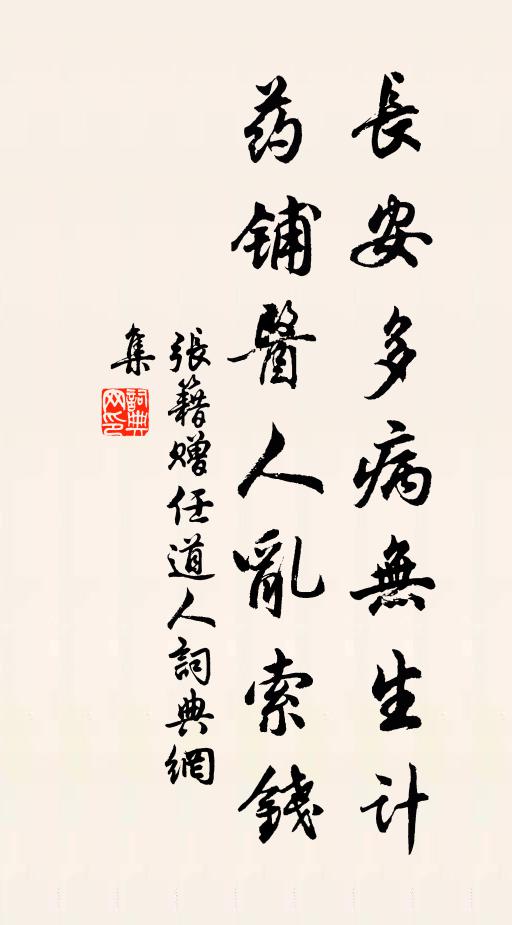 長安多病無生計
药铺醫人亂索錢
張籍赠任道人詞典網
集
詞典网印